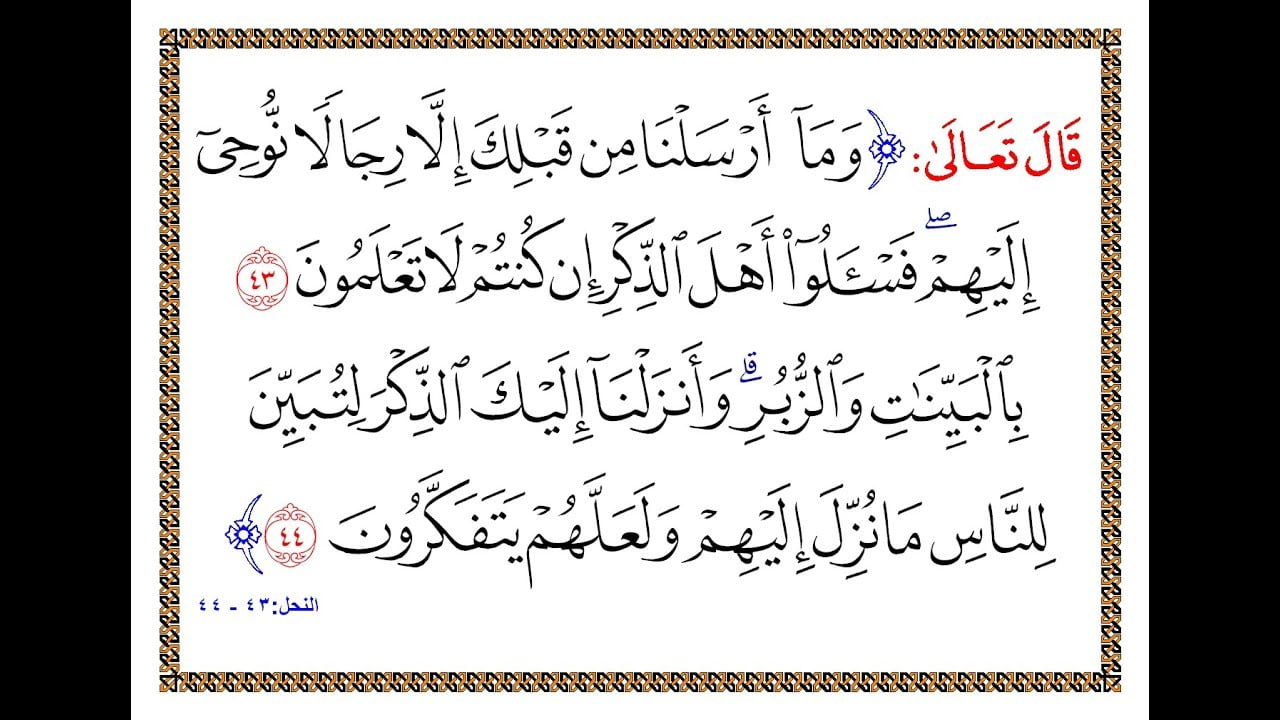 قَالَ تَعَالَىٰ: ﴿وَمَآ أَرْسَلْنَا مِن قَبْلِكَ إِلَّا رِجَالًا نُّوحِىٓ
إِلَيْهِمْ ۖ فَسْـَٔلُوٓا۟ أَهْلَ ٱلذِّكْرِ إِن كُنتُمْ لَا تَعْلَمُونَ ٤٣
بِٱلْبَيِّنَـٰتِ وَٱلزُّبُرِ ۗ وَأَنزَلْنَآ إِلَيْكَ ٱلذِّكْرَ لِتُبَيِّنَ
لِلنَّاسِ مَا نُزِّلَ إِلَيْهِمْ وَلَعَلَّهُمْ يَتَفَكَّرُونَ ٤٤﴾
النحل: ٤٣ - ٤٤